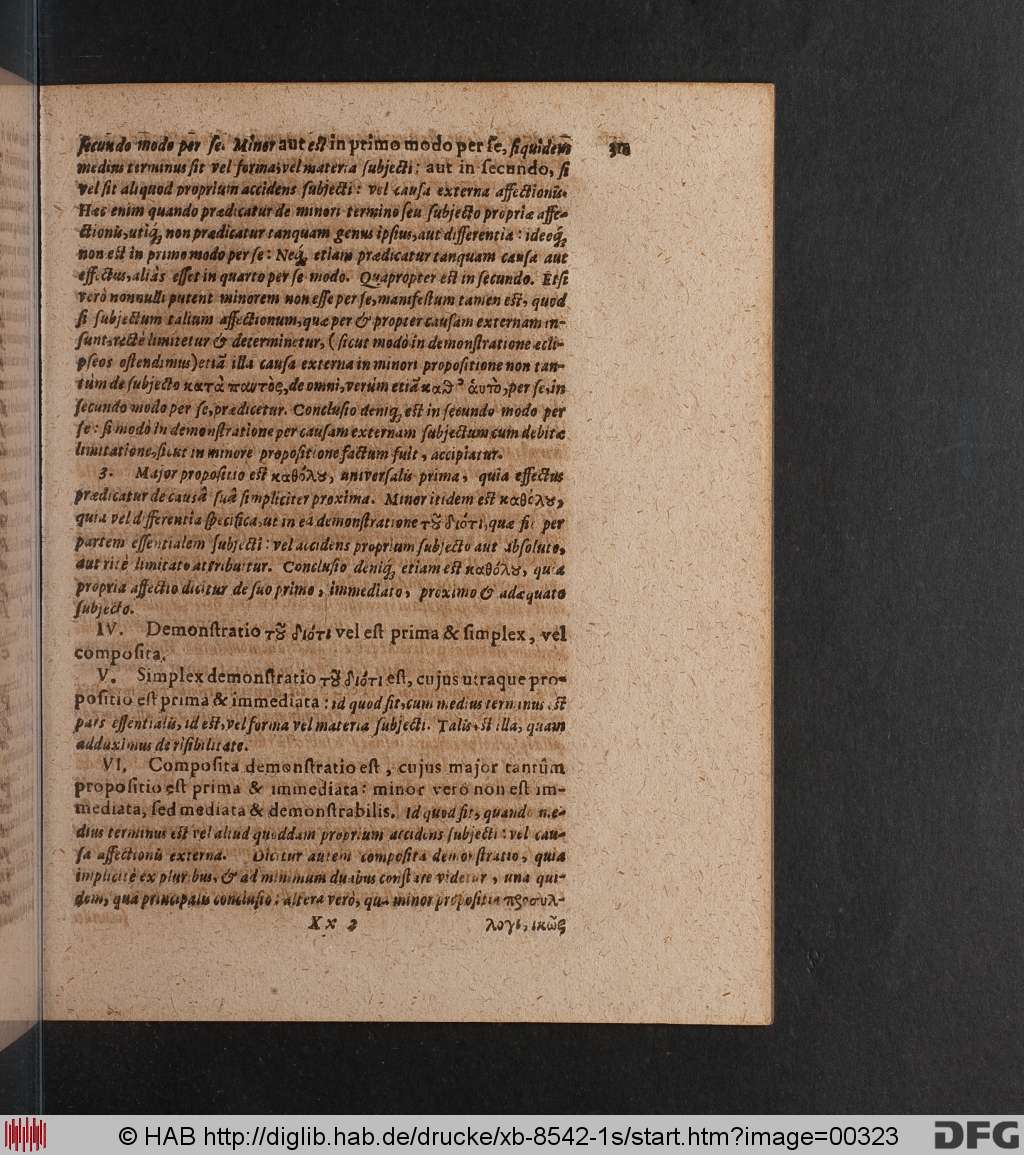 ſecundo modo per ſe. Minor aut eſt in primo modo per ſe, ſiquidem
medius terminus ſit vel forma, vel materia ſubjecti: aut in ſecundo, ſi
vel ſit aliquod proprium accidens ſubjecti: vel cauſa externa affectionis.
Hæc enim quando prædicatur de minori termino ſeu ſubjecto propriæ affe-
ctionis, utiq́;, non prædicatur tanquam genus ipſius, aut differentia: ideoq́;
non eſt in primo modo per ſe: Neq́; etiam prædicatur tanquam cauſa aut
effectus, aliàs eſſet in quarto per ſe modo. Quapropter eſt in ſecundo. Etſi
verò nonnulli putent minorem non eſſe per ſe, manifeſtum tamen eſt, quod
ſi ſubjectum talium affectionum, quæ per & propter cauſam externam in-
ſunt, rectè limitetur & determinetur, (ſicut modò in demonſtratione ecli-
pſeos oſtendimus) etiã illa cauſa externa in minori propoſitione non tan-
tùm de ſubjecto κατὰ παντὸς, de omni, verùm etiã καθ᾽ ἁυτὸ, per ſe, in
ſecundo modo per ſe, prædicetur. Concluſio deniq́; eſt in ſecundo modo per
ſe: ſi modò in demonſtratione per cauſam externam ſubjectum cum debitæ
limitatione, ſicut in minore propoſitione factum fuit, accipiatur.
3. Major propoſitio eſt καθόλου, univerſalis prima, quia effectus
prædicatur de causâ ſuâ ſimpliciter proxima. Minor itidem eſt καθόλου,
quia vel differentia ſpecifica, ut in eâ demonſtratione τοῦ διότι, quæ fit per
partem eſſentialem ſubjecti: vel accidens proprium ſubjecto aut abſoluto,
aut ritè limitato attribuitur. Concluſio deniq́; etiam eſt καθόλου, quia
propria affectio dicitur de ſuo primo, immediato, proximo & adæquato
ſubjecto.
IV. Demonſtratio τοῦ διότι vel eſt prima & ſimplex, vel
compoſita.
V. Simplex demonſtratio τοῦ διότι eſt, cujus utraque pro-
poſitio eſt prima & immediata: id quod fit, cum medius terminus eſt
pars eſſentialis, id eſt, vel forma vel materia ſubjecti. Talis eſt illa, quam
adduximus de riſibilitate.
VI. Compoſita demonſtratio eſt, cujus major tantùm
propoſitio eſt prima & immediata: minor verò non eſt im-
mediata, ſed mediata & demonſtrabilis. Id quod fit, quando me-
dius terminus eſt vel aliud quoddam proprium accidens ſubjecti: vel cau-
ſa affectionis externa. Dicitur autem compoſita demonſtratio, quia
implicitè ex pluribus, & ad minimum duabus conſtare videtur, una qui-
dem, qua principalis concluſio: altera verò, qua minor propoſitio προσυλ-
Xx 2 λογιςικῶς
© HAB http://diglib.hab.de/drucke/xb-8542-1s/start.htm?image=00323 DFG